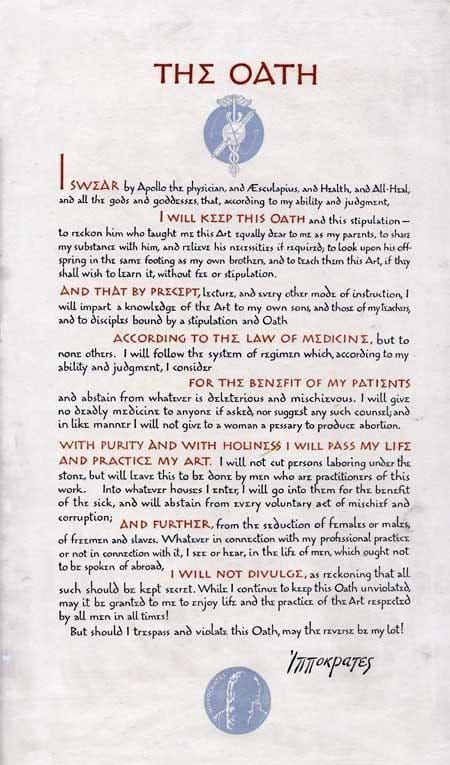 THE OATH
I SWEAR by Apollo the physician, and Æsculapius, and Health, and All-Heal,
and all the gods and goddesses, that, according to my ability and judgment,
I WILL KEEP THIS OATH and this stipulation—
to reckon him who taught me this Art equally dear to me as my parents, to share
my substance with him, and relieve his necessities if required; to look upon his off-
spring in the same footing as my own brothers, and to teach them this Art, if they
shall wish to learn it, without fee or stipulation.
AND THAT BY PRECEPT, lecture, and every other mode of instruction, I
will impart a knowledge of the Art to my own sons, and those of my teachers,
and to disciples bound by a stipulation and Oath
ACCORDING TO THE LAW OF MEDICINE, but to
none others. I will follow the system of regimen which, according to my
ability and judgment, I consider
FOR THE BENEFIT OF MY PATIENTS
and abstain from whatever is deleterious and mischievous. I will give
no deadly medicine to anyone if asked, nor suggest any such counsel; and
in like manner I will not give to a woman a pessary to produce abortion.
WITH PURITY AND WITH HOLINESS I WILL PASS MY LIFE
AND PRACTICE MY ART. I will not cut persons laboring under the
stone, but will leave this to be done by men who are practitioners of this
work. Into whatever houses I enter, I will go into them for the benefit
of the sick, and will abstain from every voluntary act of mischief and
corruption; AND FURTHER, from the seduction of females or males,
of freemen and slaves. Whatever in connection with my professional practice
or not in connection with it, I see or hear, in the life of men, which ought not
to be spoken of abroad,
I WILL NOT DIVULGE, as reckoning that all
such should be kept secret. While I continue to keep this Oath unviolated,
may it be granted to me to enjoy life and the practice of the Art respected
by all men in all times!
But should I trespass and violate this Oath, may the reverse be my lot!
Ἱπποκρατες